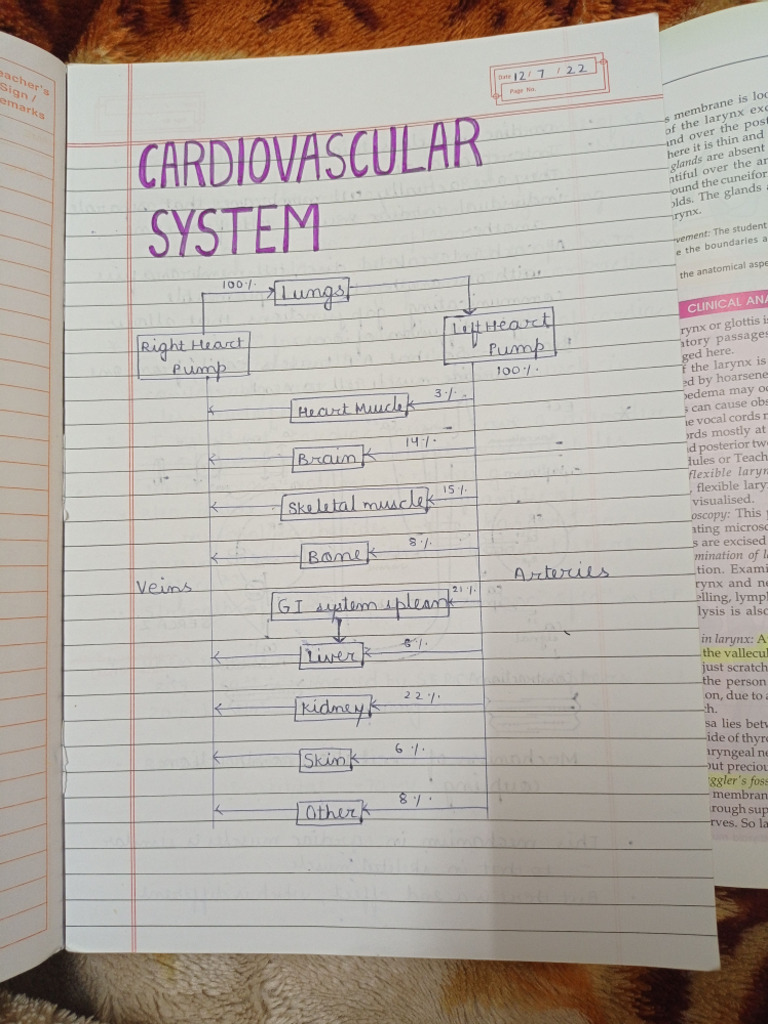 eacher's
Sign /
emarks
Date 12 / 7 / 22
Page No.
CARDIOVASCULAR
SYSTEM
100%
Lungs
Right Heart
Pump
Left Heart
Pump
100%
3%
Heart Muscle
14%
Brain
15%
Skeletal muscle
8%
Bone
Veins
Arteries
21%
GI system spleen
6%
Liver
22%
Kidney
6%
Skin
8%
Other
s membrane is loo
of the larynx exc
nd over the post
here it is thin and
glands are absent
ntiful over the ar
ound the cuneifor
olds. The glands a
rynx.
vement: The student
e the boundaries a
the anatomical aspe
CLINICAL ANA
rynx or glottis is
tory passages
ged here.
f the larynx is
ed by hoarsene
oedema may oc
s can cause obs
e vocal cords r
ords mostly at
d posterior two
dules or Teach
flexible laryn
, flexible lary
visualised.
oscopy: This
ating microsc
s are excised
mination of la
tion. Exami
rynx and ne
elling, lymp
lysis is also
in larynx: A
the vallecul
just scratch
the person
on, due to a
h.
sa lies betw
ide of thyro
aryngeal ne
out preciou
ggler's foss
membran
rough sup
rves. So la